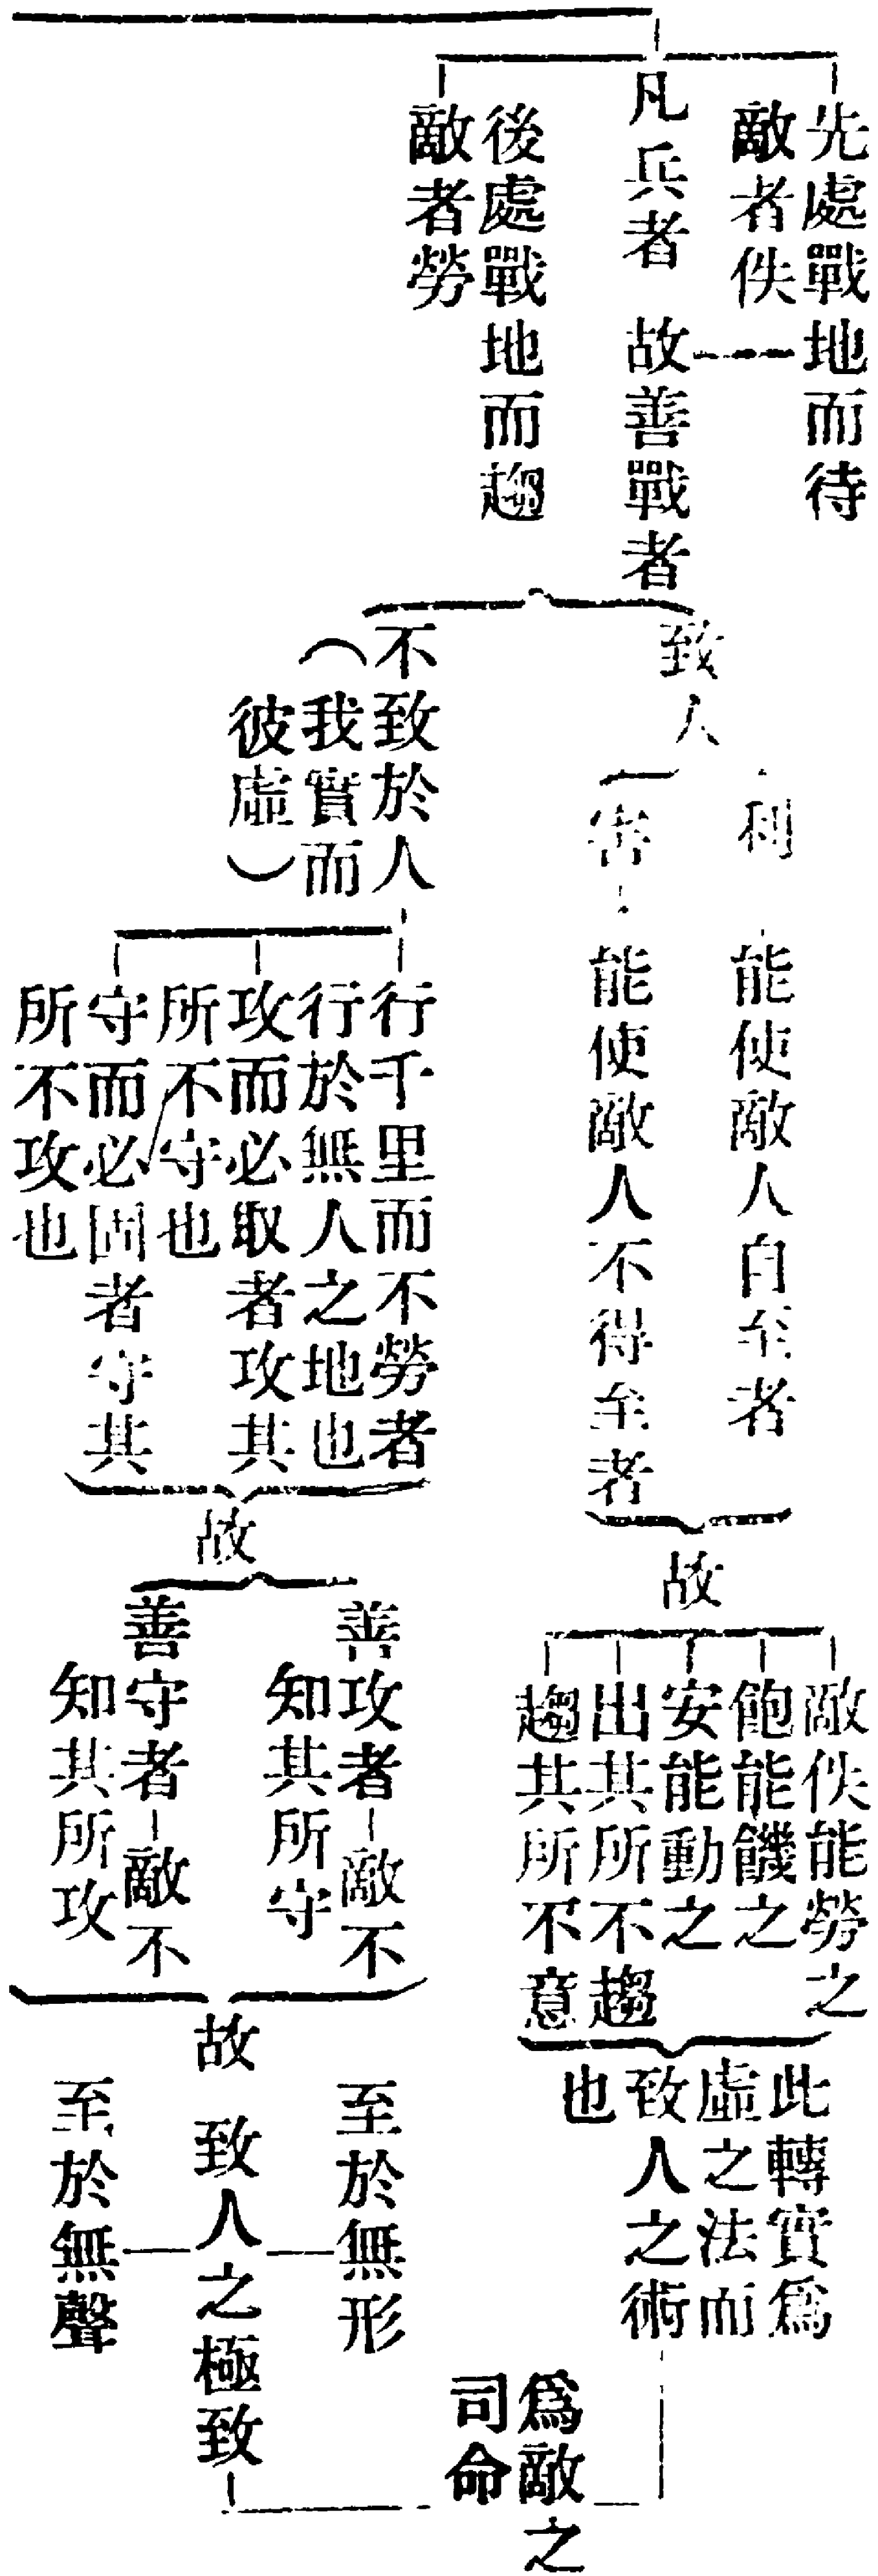 凡兵者
先處戰地而待
敵者佚
後處戰地而趨
敵者勞
故善戰者
致人
利
能使敵人自至者
害
能使敵人不得至者
故
敵佚能勞之
飽能饑之
安能動之
出其所不趨
趨其所不意
此轉實爲
虛之法而
致人之術
也
不致於人
（我實而
彼虛）
行千里而不勞者
行於無人之地也
攻而必取者攻其
所不守也
守而必固者守其
所不攻也
故
善攻者－敵不
知其所守
善守者－敵不
知其所攻
故
至於無形
致人之極致
至於無聲
爲敵之
司命